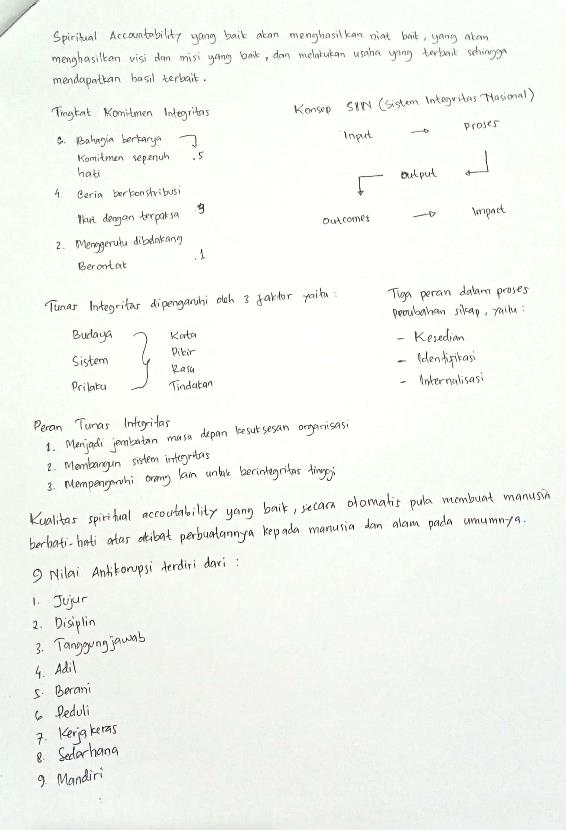 Spiritual Accountability yang baik akan menghasilkan niat baik, yang akan
menghasilkan visi dan misi yang baik, dan melakukan usaha yang terbaik sehingga
mendapatkan hasil terbaik.
Tingkat Komitmen Integritas
6. Bahagia berkarya
Komitmen sepenuh .5
hati
4. Ceria berkonstribusi
Ikut dengan terpaksa 3
2. Menggerutu dibelakang
Berontak .1
Konsep SIN (Sistem Integritas Nasional)
Input → Proses
Output
Outcomes → Impact
Tunas Integritas dipengaruhi oleh 3 faktor yaitu :
Budaya Kata
Pikir
Sistem Rasa
Prilaku Tindakan
Tiga peran dalam proses
perubahan sikap, yaitu :
- Kesedian
- Identifikasi
- Internalisasi
Peran Tunas Integritas
1. Menjadi jembatan masa depan kesuksesan organisasi
2. Membangun sistem integritas
3. Mempengaruhi orang lain untuk berintegritas tinggi
Kualitas spiritual accoutability yang baik, secara otomatis pula membuat manusia
berhati-hati atas akibat perbuatannya kepada manusia dan alam pada umumnya.
9 Nilai Antikorupsi terdiri dari :
1. Jujur
2. Disiplin
3. Tanggung jawab
4. Adil
5. Berani
6 Peduli
7. Kerja keras
8. Sederhana
9. Mandiri